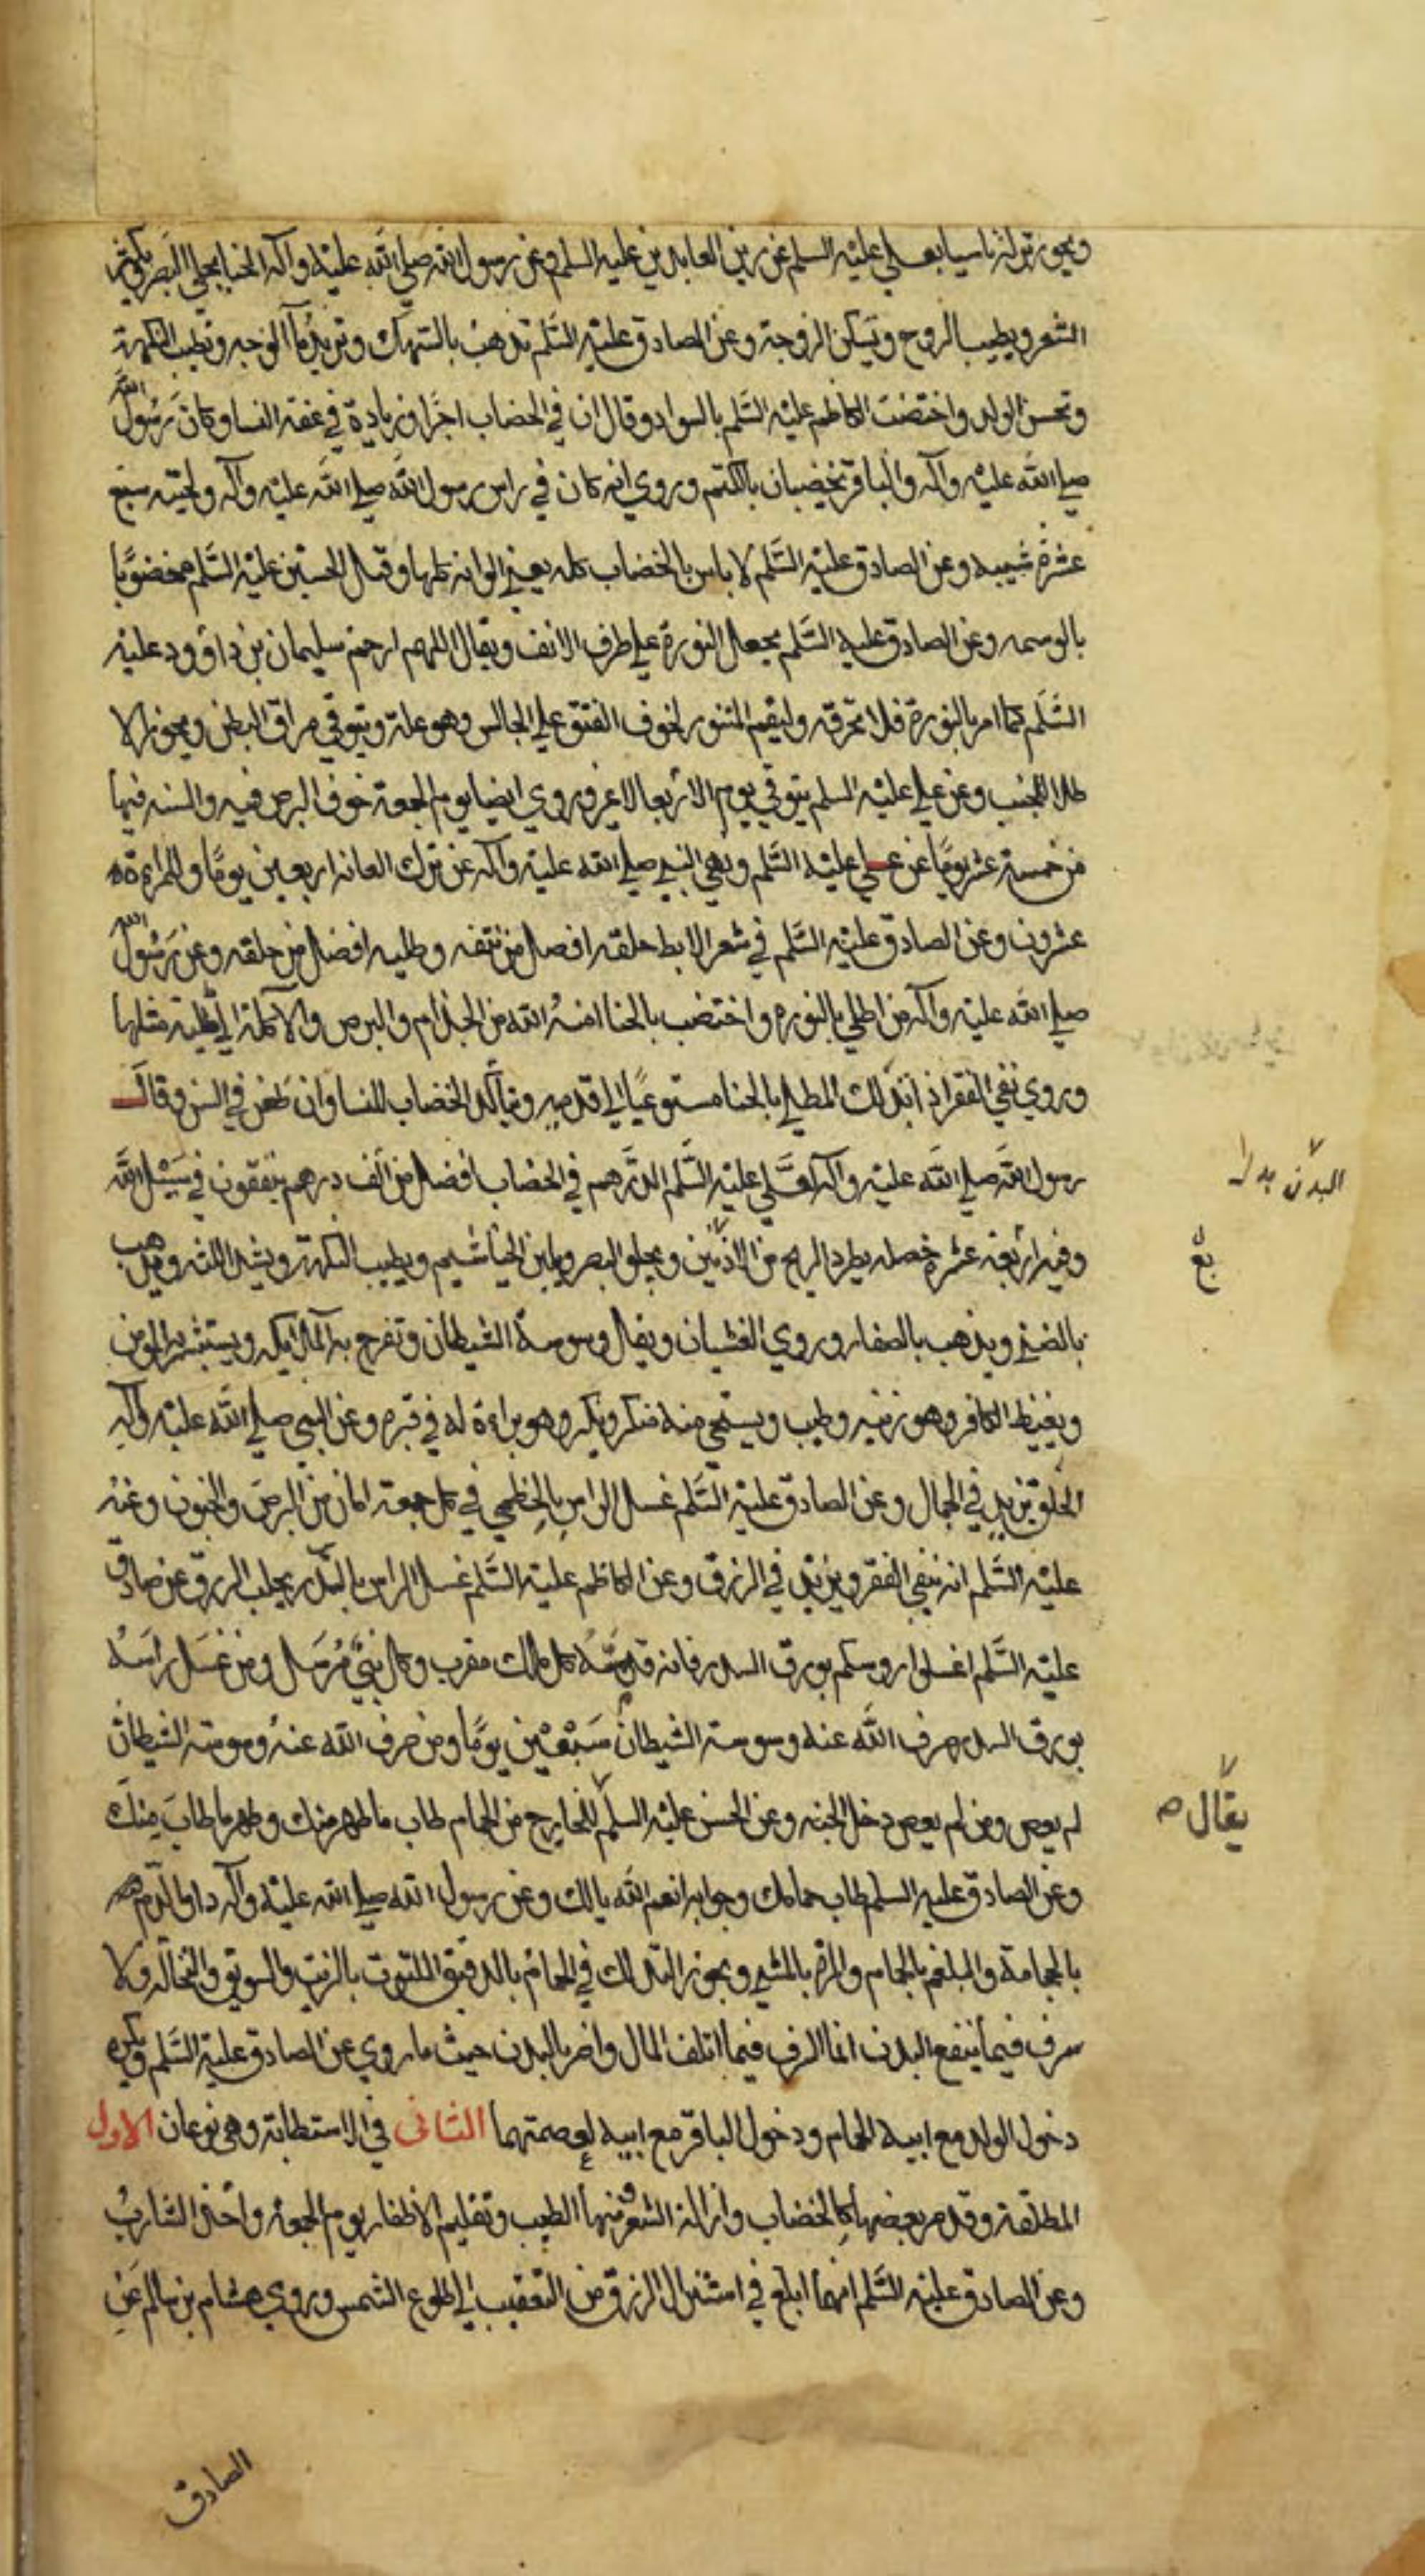 ويجوز تركه تاسيا بعلي عليه السلم عن زين العابدين عليه السلم وعن رسول الله صلي الله عليه واله الحنا يجلي البصر ويكثر
الشعر ويطيب الروح ويسكن الزوجة وعن الصادق عليه السلم تذهب بالسهك وتزيد ما الوجه وتطيب النكهة
وتحسن الولد واختضب الكاظم عليه السلم بالسواد وقال ان في الخضاب اجرا وزيادة في عفة النسا وكان رسول الله
صلي الله عليه واله والباقر يختضبان بالكتم وروي انه كان في راس رسول الله صلي الله عليه واله ولحيته سبع
عشرة شيبه وعن الصادق عليه السلم لا باس بالخضاب كله يعني الوانه كلها وقتل الحسين عليه السلم مخضوبا
بالوسمه وعن الصادق عليه السلم يجعل النورة علي طرف الانف ويقال اللهم ارحم سليمان بن داوود عليه
السلم كما امر بالنورة فلا تحرقه وليقم المتنور لخوف الفتق علي الجالس وهو علة ويتوقي مراق البطن ويجوز الا
طلا للجنب وعن علي عليه السلم يتوقي يوم الاربعا لا غير وروي ايضا يوم الجمعة خوف البرص فيه والسنه فيما
من خمسة عشر يوما عن علي عليه السلم ونهي النبي صلي الله عليه واله عن ترك العانه اربعين يوما والمراءة
عشرون وعن الصادق عليه السلم في شعر الابط حلقه افضل من نتفه وطليه افضل من حلقه وعن رسول الله
صلي الله عليه واله من اطلي بالنوره واختضب بالحنا امنه الله من الجذام والبرص والاكلة الي طلية مثلها
وروي نفي الفقر اذ اتدلك المطلي بالحنا مستوعبا الي قدميه ويتاكد الخضاب للنسا وان طعن في السن وقال
رسول الله صلي الله عليه واله لعلي عليه السلم الدرهم في الخضاب افضل من الف درهم ينفقون في سبيل الله
وفيه اربعة عشرة خصله يطرد الريح من الاذنين ويجلو البصر ويلين الخياشيم ويطيب النكهة ويشد اللثه ويذهب
بالضني ويذهب بالصفار وروي الغثيان ويقل وسوسة الشيطان وتفرح به الملايكه ويستبشر به المومن
ويغيظ الكافر وهو زينه وطيب ويستحي منه منكر ونكير وهو براءة له في قبره وعن النبي صلي الله عليه واله
الحلق يزيد في الجمال وعن الصادق عليه السلم غسل الراس بالخطمي في كل جمعة امان من البرص والجنون وعنه
عليه السلم انه ينفي الفقر ويزيد في الرزق وعن الكاظم عليه السلم غسل الراس بالسدر يجلب الرزق وعن صادق
عليه السلم اغسلوا روسكم بورق السدر فانه قدسه كل ملك مقرب وكل نبي مرسل ومن غسل راسه
بورق السدر صرف الله عنه وسوسة الشيطان سبعين يوما ومن صرف الله عنه وسوسة الشيطان
لم يعص ومن لم يعص دخل الجنه وعن الحسن عليه السلم للخارج من الحمام طاب ما طهر منك وطهر ما طاب منك
وعن الصادق عليه السلم طاب حمامك وجوابه انعم الله بالك وعن رسول الله صلي الله عليه واله داو الدم
بالحجامة والبلغم بالحمام والمرة بالمشي ويجوز التدلك في الحمام بالدقيق الملتوت بالزيت والسويق والنخاله ولا
سرف فيما ينفع البدن انما السرف فيما اتلف المال واضر بالبدن حيث ما روي عن الصادق عليه السلم ويكره
دخول الولد مع ابيه الحمام ودخول الباقر مع ابيه لعصمتهما الثاني في الاستطابة وهي نوعان الاول
المطلقة وقد مر بعضها كالخضاب وازالة الشعر ومنها الطيب وتقليم الاظفار يوم الجمعه واحفي الشارب
وعن الصادق عليه السلم انهما ابلغ في استنزال الرزق من التعقيب الي طلوع الشمس وروي هشام بن سالم عن
البدن بدل
يقال
الصادق